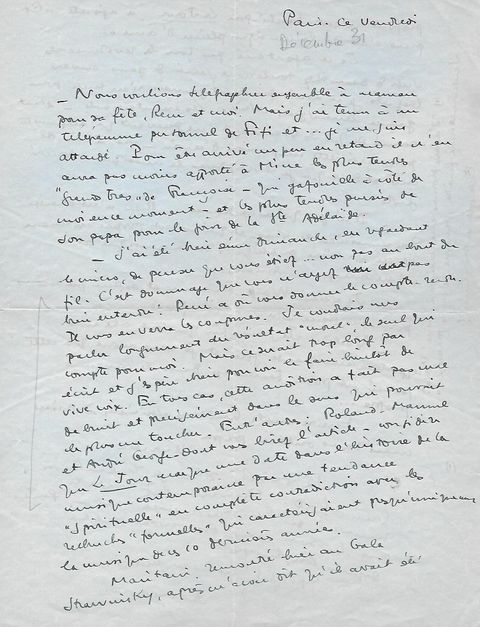 Paris. ce vendredi
Décembre 31
— Nous voulions télégraphier ensemble à maman
pour sa fête, René et moi. Mais j'ai tenu à un
télégramme personnel de Fifi et ... je me suis
attardé. Pour être arrivé un peu en retard il n'en
aura pas moins apporté à Mime les plus tendres
de Françoise - qui gazouille à côté de
moi en ce moment - et les plus tendres pensées de
son papa pour le jour de la Ste Adelaïde.
— J'ai été bien ému Dimanche, en regardant
le micro, de penser que vous étiez ... non pas au bout du
fil. C'est dommage que vous n'ayez pas
bien entendu! René a dû vous donner le compte-rendu.
Il vous enverra les coupures. Je voudrais vous
parler longuement du résultat "moral", le seul qui
compte pour moi. Mais ce serait trop long par
écrit et j'espère bien pouvoir le faire bientôt de
vive voix. En tous cas, cette audition a fait pas mal
de bruit et précisément dans le sens qui pouvait
le plus me toucher. Entr'autres: Roland-Manuel
et André George - dont vous lirez l'article - ont dit
que Le Jour marque une date dans l'histoire de la
musique contemporaine par une tendance
"spirituelle" en complète contradiction avec les
recherches "formelles" qui caractérisaient presqu'uniquement
la musique des 10 dernières années.
Maritain, rencontré hier au Gala
Strawinsky, après m'avoir dit qu'il avait été